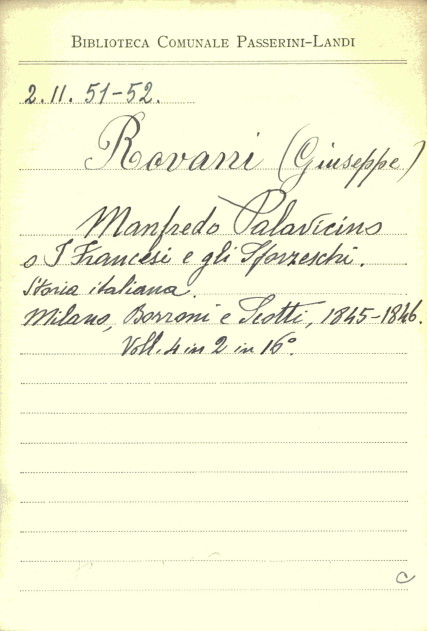 BIBLIOTECA COMUNALE PASSERINI-LANDI
2.II. 51-52.
Rovani (Giuseppe)
Manfredo Palavicino
o I Francesi e gli Sforzeschi.
Storia italiana.
Milano, Borroni e Scotti, 1845-1846.
Voll. 4 in 2 in 16°.
C